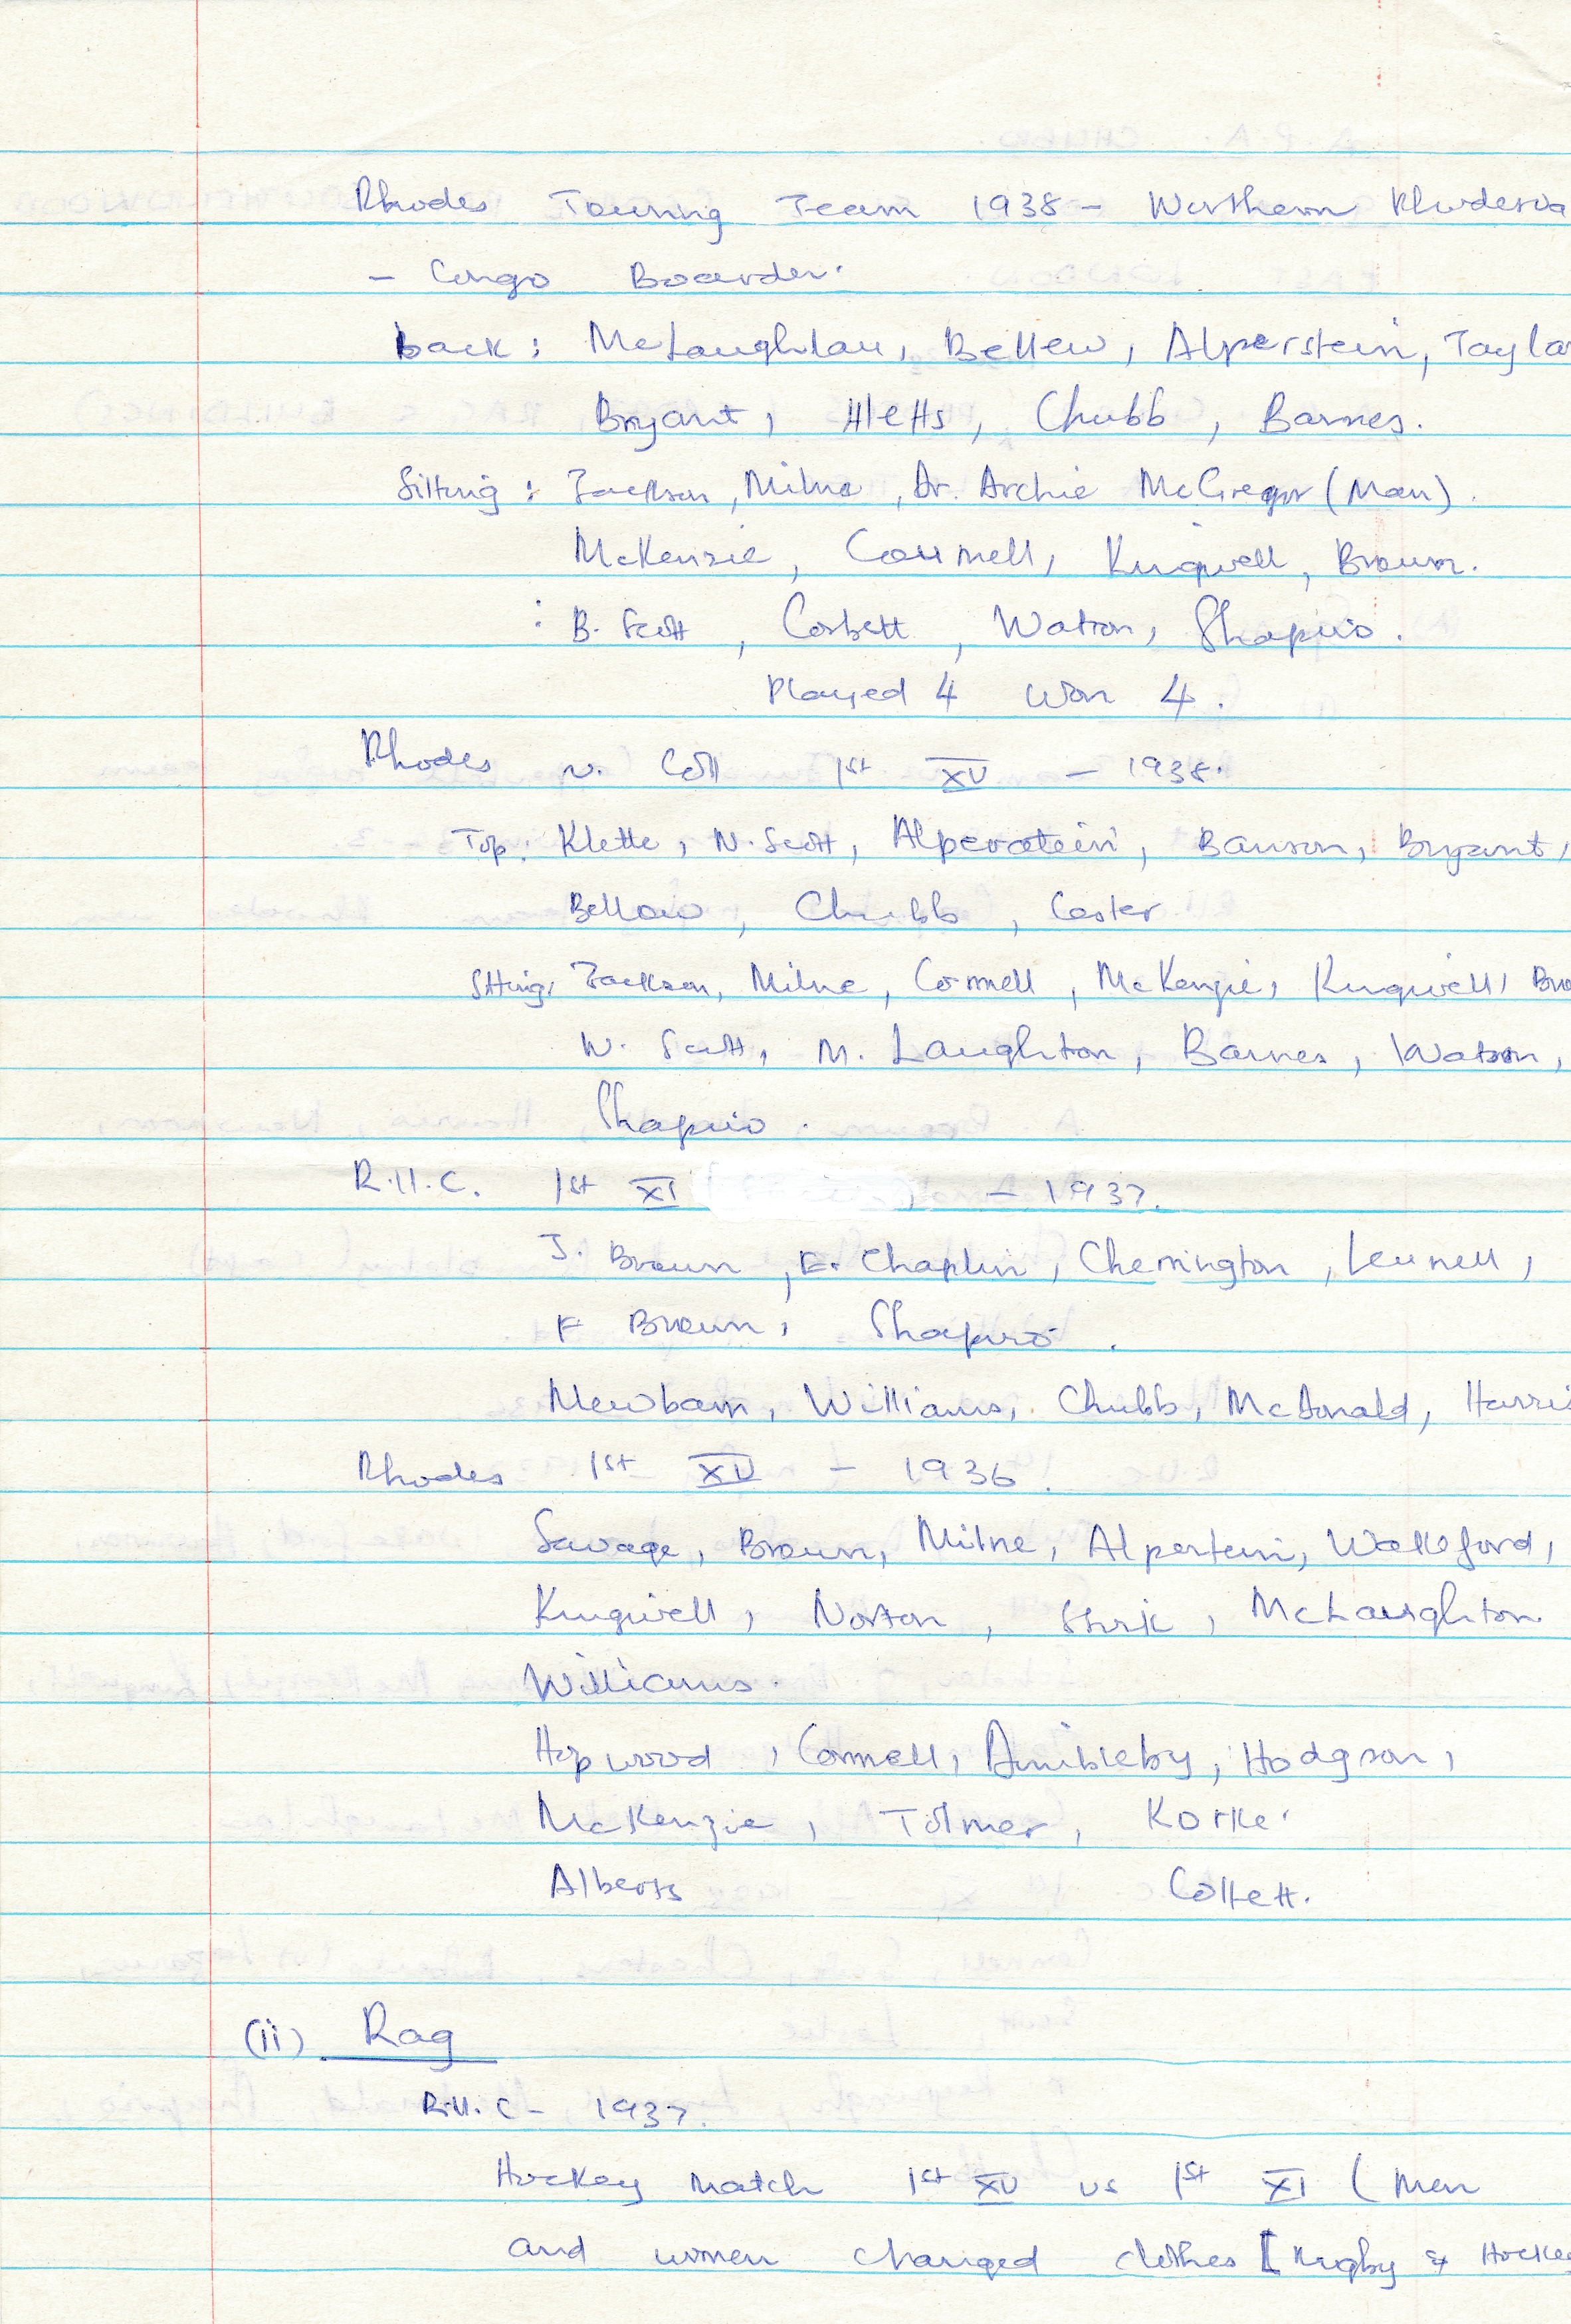 Rhodes Touring Team 1938 - Northern Rhodesia
- Congo Boarder.
back : McLaughlan, Bellew, Alperstein, Taylor
Bryant, Chubb, Barnes.
Sitting : Jackson, Milne, Dr. Archie McGregor (Man).
McKenzie, Connell, Kingwell, Brown.
: B. Scott, Corbett, Watson, Shapiro.
Played 4 Won 4.
Rhodes U. Coll 1st XV - 1938.
Top: Klette, N. Scott, Alperstein, Bryant,
Bellew, Chubb, Coster
Sitting, Jackson, Milne, Connell, McKenzie, Kingwell, Bro
W. Scott, M. Laughton, Barnes, Watson,
Shapiro.
R.U.C. 1st XI - 1937.
J. Brown, E. Chaplin, Cherrington, Lennell,
F Brown, Shapiro.
Newbam, Williams, Chubb, McDonald, Harris
Rhodes 1st XV - 1936.
Savage, Brown, Milne, Alpertein, Wakeford,
Kingwell, Norton, McLaughton
Williams.
Hopwood, Connell, Hodgson,
McKenzie, Tolmer, Korke.
Alberts Collett.
(ii) Rag
R.U.C - 1937.
Hockey Match 1st XV vs 1st XI (Men
and women changed clothes [Rugby & Hockey